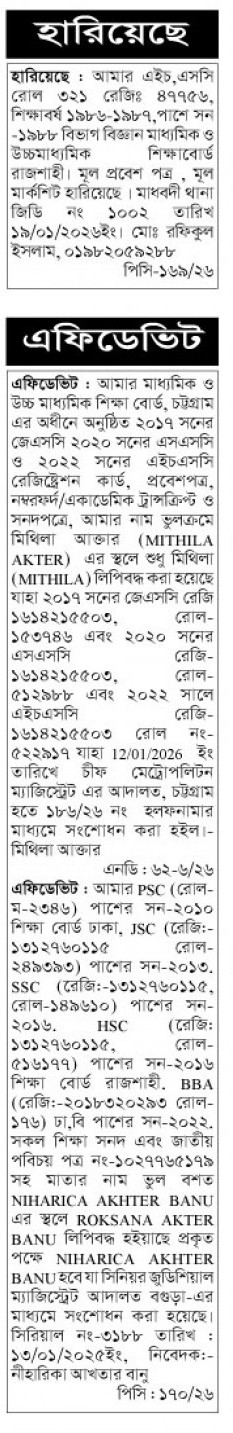 হারিয়েছে
হারিয়েছে : আমার এইচ,এসসি
রোল ৩২১ রেজিঃ ৪৭৭৫৬,
শিক্ষাবর্ষ ১৯৮৬-১৯৮৭,পাশে সন
-১৯৮৮ বিভাগ বিজ্ঞান মাধ্যমিক ও
উচ্চমাধ্যমিক শিক্ষাবোর্ড
রাজশাহী। মূল প্রবেশ পত্র , মূল
মার্কশিট হারিয়েছে । মাধবদী থানা
জিডি নং ১০০২ তারিখ
১৯/০১/২০২৬ইং। মোঃ রফিকুল
ইসলাম, ০১৯৮২০৫৯২৮৮
পিসি-১৬৯/২৬
এফিডেভিট
এফিডেভিট : আমার মাধ্যমিক ও
উচ্চ মাধ্যমিক শিক্ষা বোর্ড, চট্টগ্রাম
এর অধীনে অনুষ্ঠিত ২০১৭ সনের
জেএসসি ২০২০ সনের এসএসসি
ও ২০২২ সনের এইচএসসি
রেজিষ্ট্রেশন কার্ড, প্রবেশপত্র,
নম্বরফর্দ/একাডেমিক ট্রান্সক্রিপ্ট ও
সনদপত্রে, আমার নাম ভুলক্রমে
মিথিলা আক্তার (MITHILA
AKTER) এর স্থলে শুধু মিথিলা
(MITHILA) লিপিবদ্ধ করা হয়েছে
যাহা ২০১৭ সনের জেএসসি রেজি
১৬১৪২১৫৫০৩, রোল-
১৫৩৭৪৬ এবং ২০২০ সনের
এসএসসি রেজি-
১৬১৪২১৫৫০৩, রোল-
৫১২৯৮৮ এবং ২০২২ সালে
এইচএসসি রেজি-
১৬১৪২১৫৫০৩ রোল নং-
৫২২৯১৭ যাহা 12/01/2026 ইং
তারিখে চীফ মেট্রোপলিটন
ম্যাজিস্ট্রেট এর আদালত, চট্টগ্রাম
হতে ১৮৬/২৬ নং হলফনামার
মাধ্যমে সংশোধন করা হইল।-
মিথিলা আক্তার
এনডি : ৬২-৬/২৬
এফিডেভিট : আমার PSC (রোল-
ম-২৩৪৬) পাশের সন-২০১০
শিক্ষা বোর্ড ঢাকা, JSC (রেজি:-
১৩১২৭৬০১১৫ রোল-
২৪৯৩৯৩) পাশের সন-২০১৩.
SSC (রেজি:-১৩১২৭৬০১১৫,
রোল-১৪৯৬১০) পাশের সন-
২০১৬. HSC (রেজি:
১৩১২৭৬০১১৫, রোল-
৫১৬১৭৭) পাশের সন-২০১৬
শিক্ষা বোর্ড রাজশাহী. BBA
(রেজি:-২০১৮৩২০২৯৩ রোল-
১৭৬) ঢা,বি পাশের সন-২০২২.
সকল শিক্ষা সনদ এবং জাতীয়
পরিচয় পত্র নং-১০২৭৭৬৫১৭৯
সহ মাতার নাম ভুল বশত
NIHARICA AKHTER BANU
এর স্থলে ROKSANA AKTER
BANU লিপিবদ্ধ হইয়াছে প্রকৃত
পক্ষে NIHARICA AKHTER
BANU হবে যা সিনিয়র জুডিশিয়াল
ম্যাজিস্ট্রেট আদালত বগুড়া-এর
মাধ্যমে সংশোধন করা হয়েছে।
সিরিয়াল নং-৩১৮৮ তারিখ :
১৩/০১/২০২৫ইং, নিবেদক:-
নীহারিকা আখতার বানু
পিসি : ১৭০/২৬